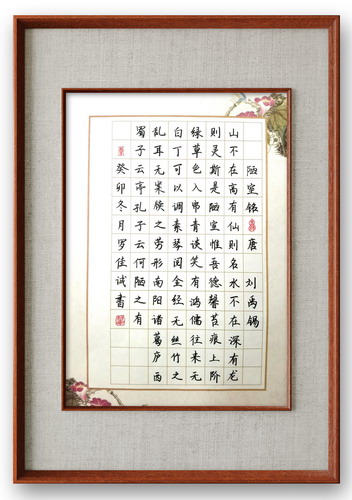 陋室铭 唐 刘禹锡
山不在高有仙则名水不在深有龙
则灵斯是陋室惟吾德馨苔痕上阶
绿草色入帘青谈笑有鸿儒往来无
白丁可以调素琴阅金经无丝竹之
乱耳无案牍之劳形南阳诸葛庐西
蜀子云亭孔子云何陋之有
癸卯冬月罗佳诚书